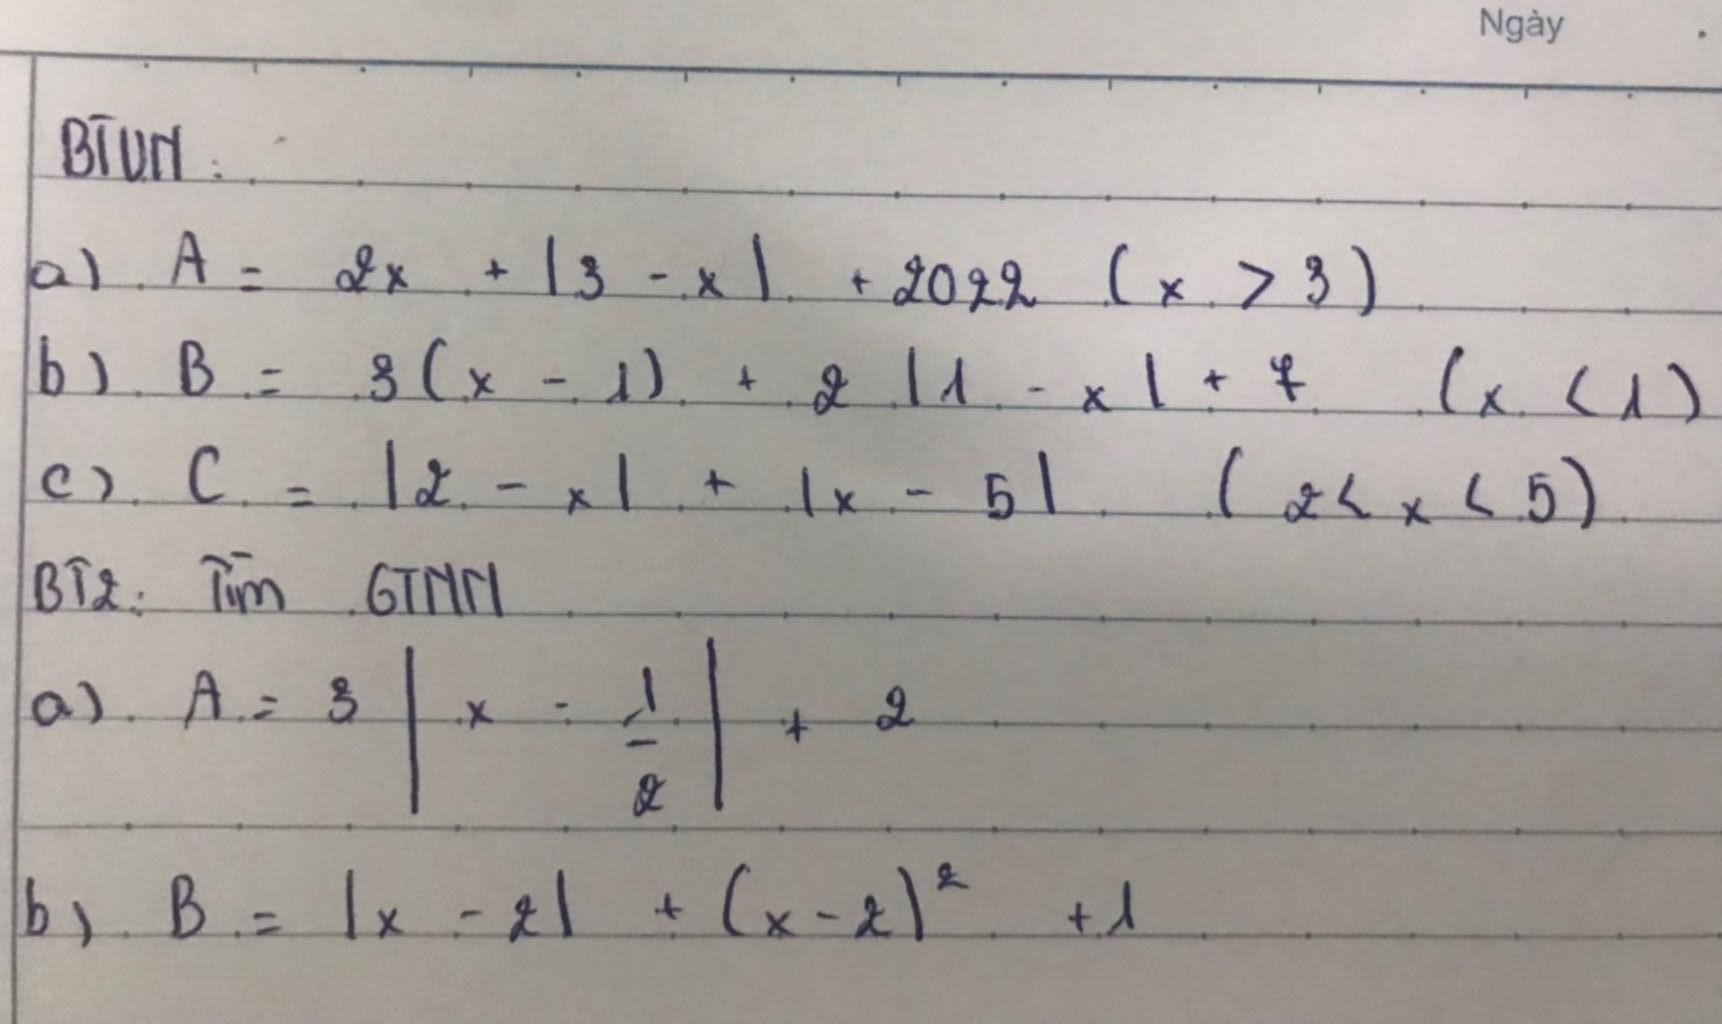 Ngày
BTVN:
a) A = 2x + |3 - x| + 2022 (x > 3)
b) B = 3(x - 1) + 2 |1 - x| + 7 (x < 1)
c) C = |2 - x| + |x - 5| (2 < x < 5)
BT2: Tìm GTNN
a) A = 3 | x - 1/2 | + 2
b) B = |x - 2| + (x - 2)² + 1